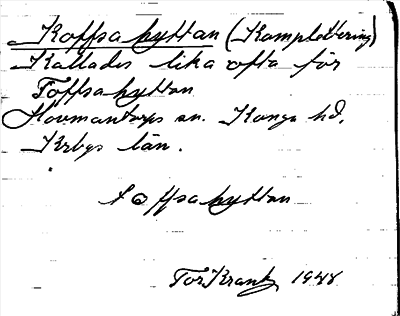 Koffsahyttan (Komplettering)
Kallades lika ofta för
Toffsahyttan
Hovmantorps sn. Konga hd.
Krbgs län.
toffsahyttan
Tor Krantz 1948